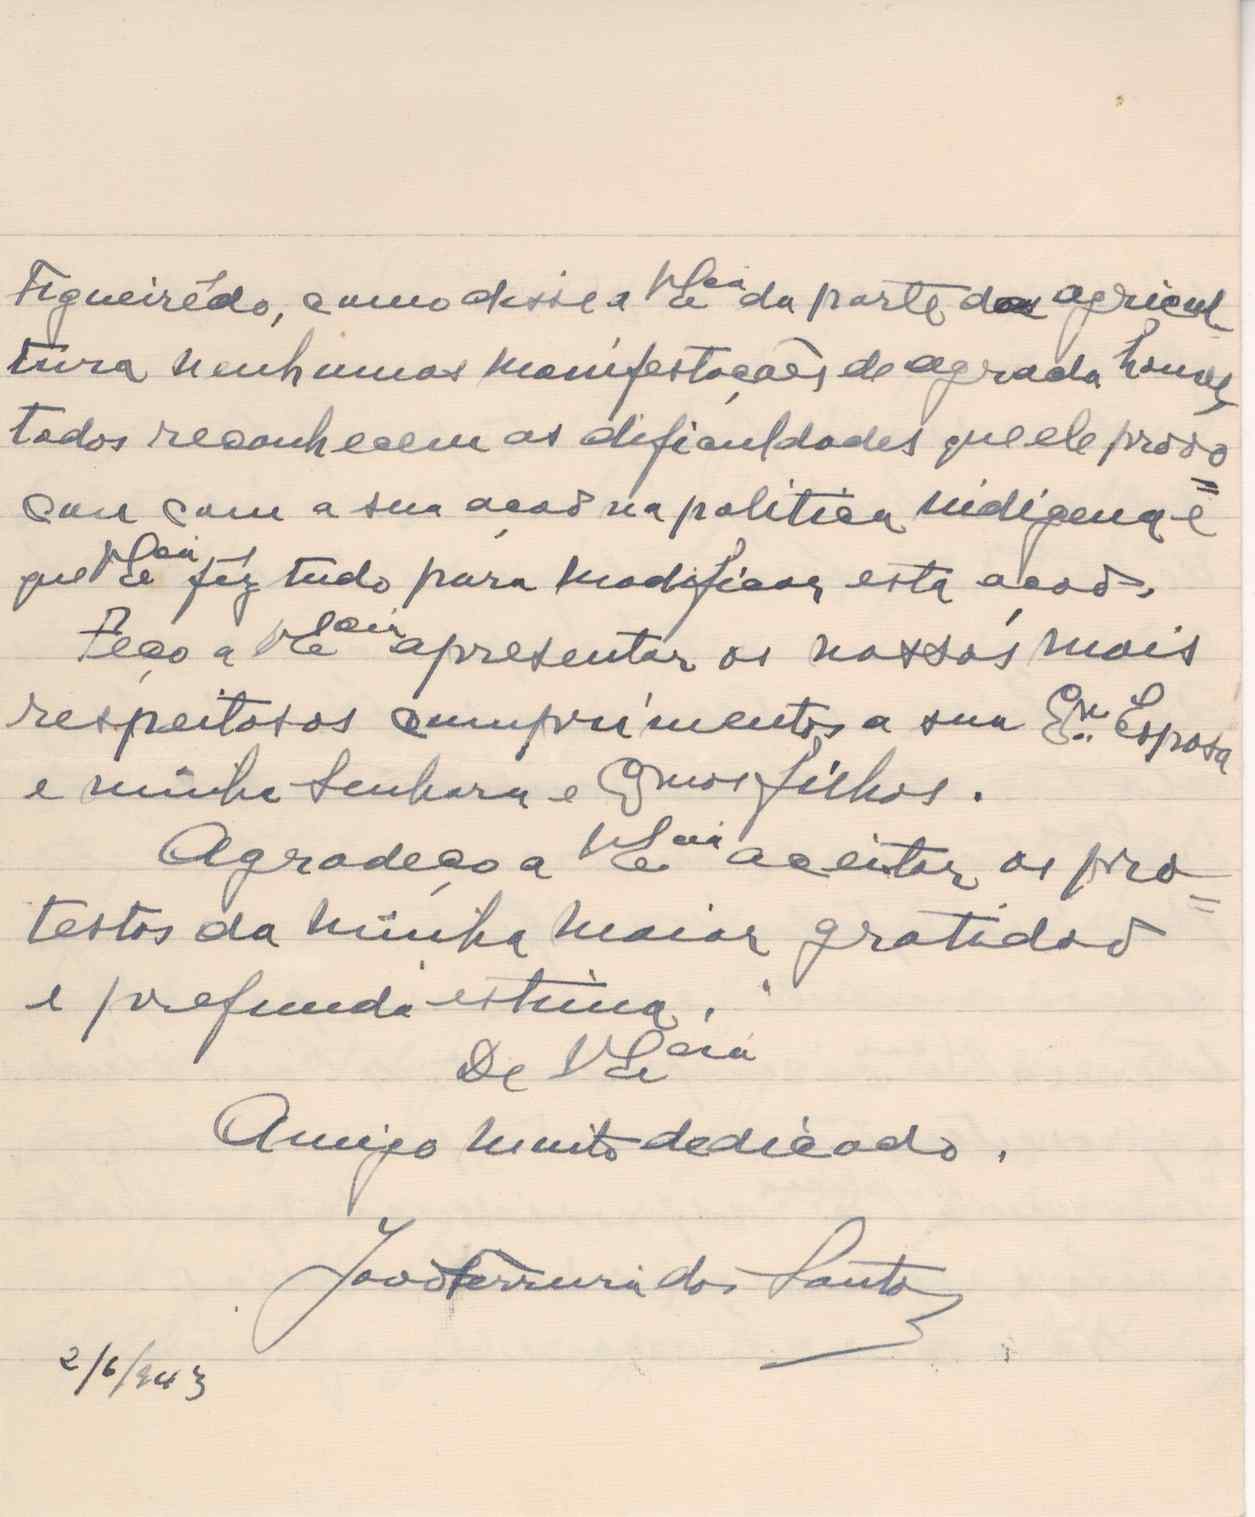 Figueirêdo, como disse a V. Ecia da parte da agricul-
tura nenhumas manifestações de agrado houve,
todos reconhecem as dificuldades que ele provo=
cou com a sua acção na politica indigena e
que V. Ecia fêz tudo para modificar esta acção.
Peço a V. Ecia apresentar os nossos mais
respeitosos cumprimentos a sua Exma. Esposa
e minha Senhora e Exmos filhos.
Agradeço a V. Ecia aceitar os pro=
testos da minha maior gratidão
e profunda estima.
De V. Ecia
Amigo muito dedicado.
João Ferreira dos Santos
2/6/943